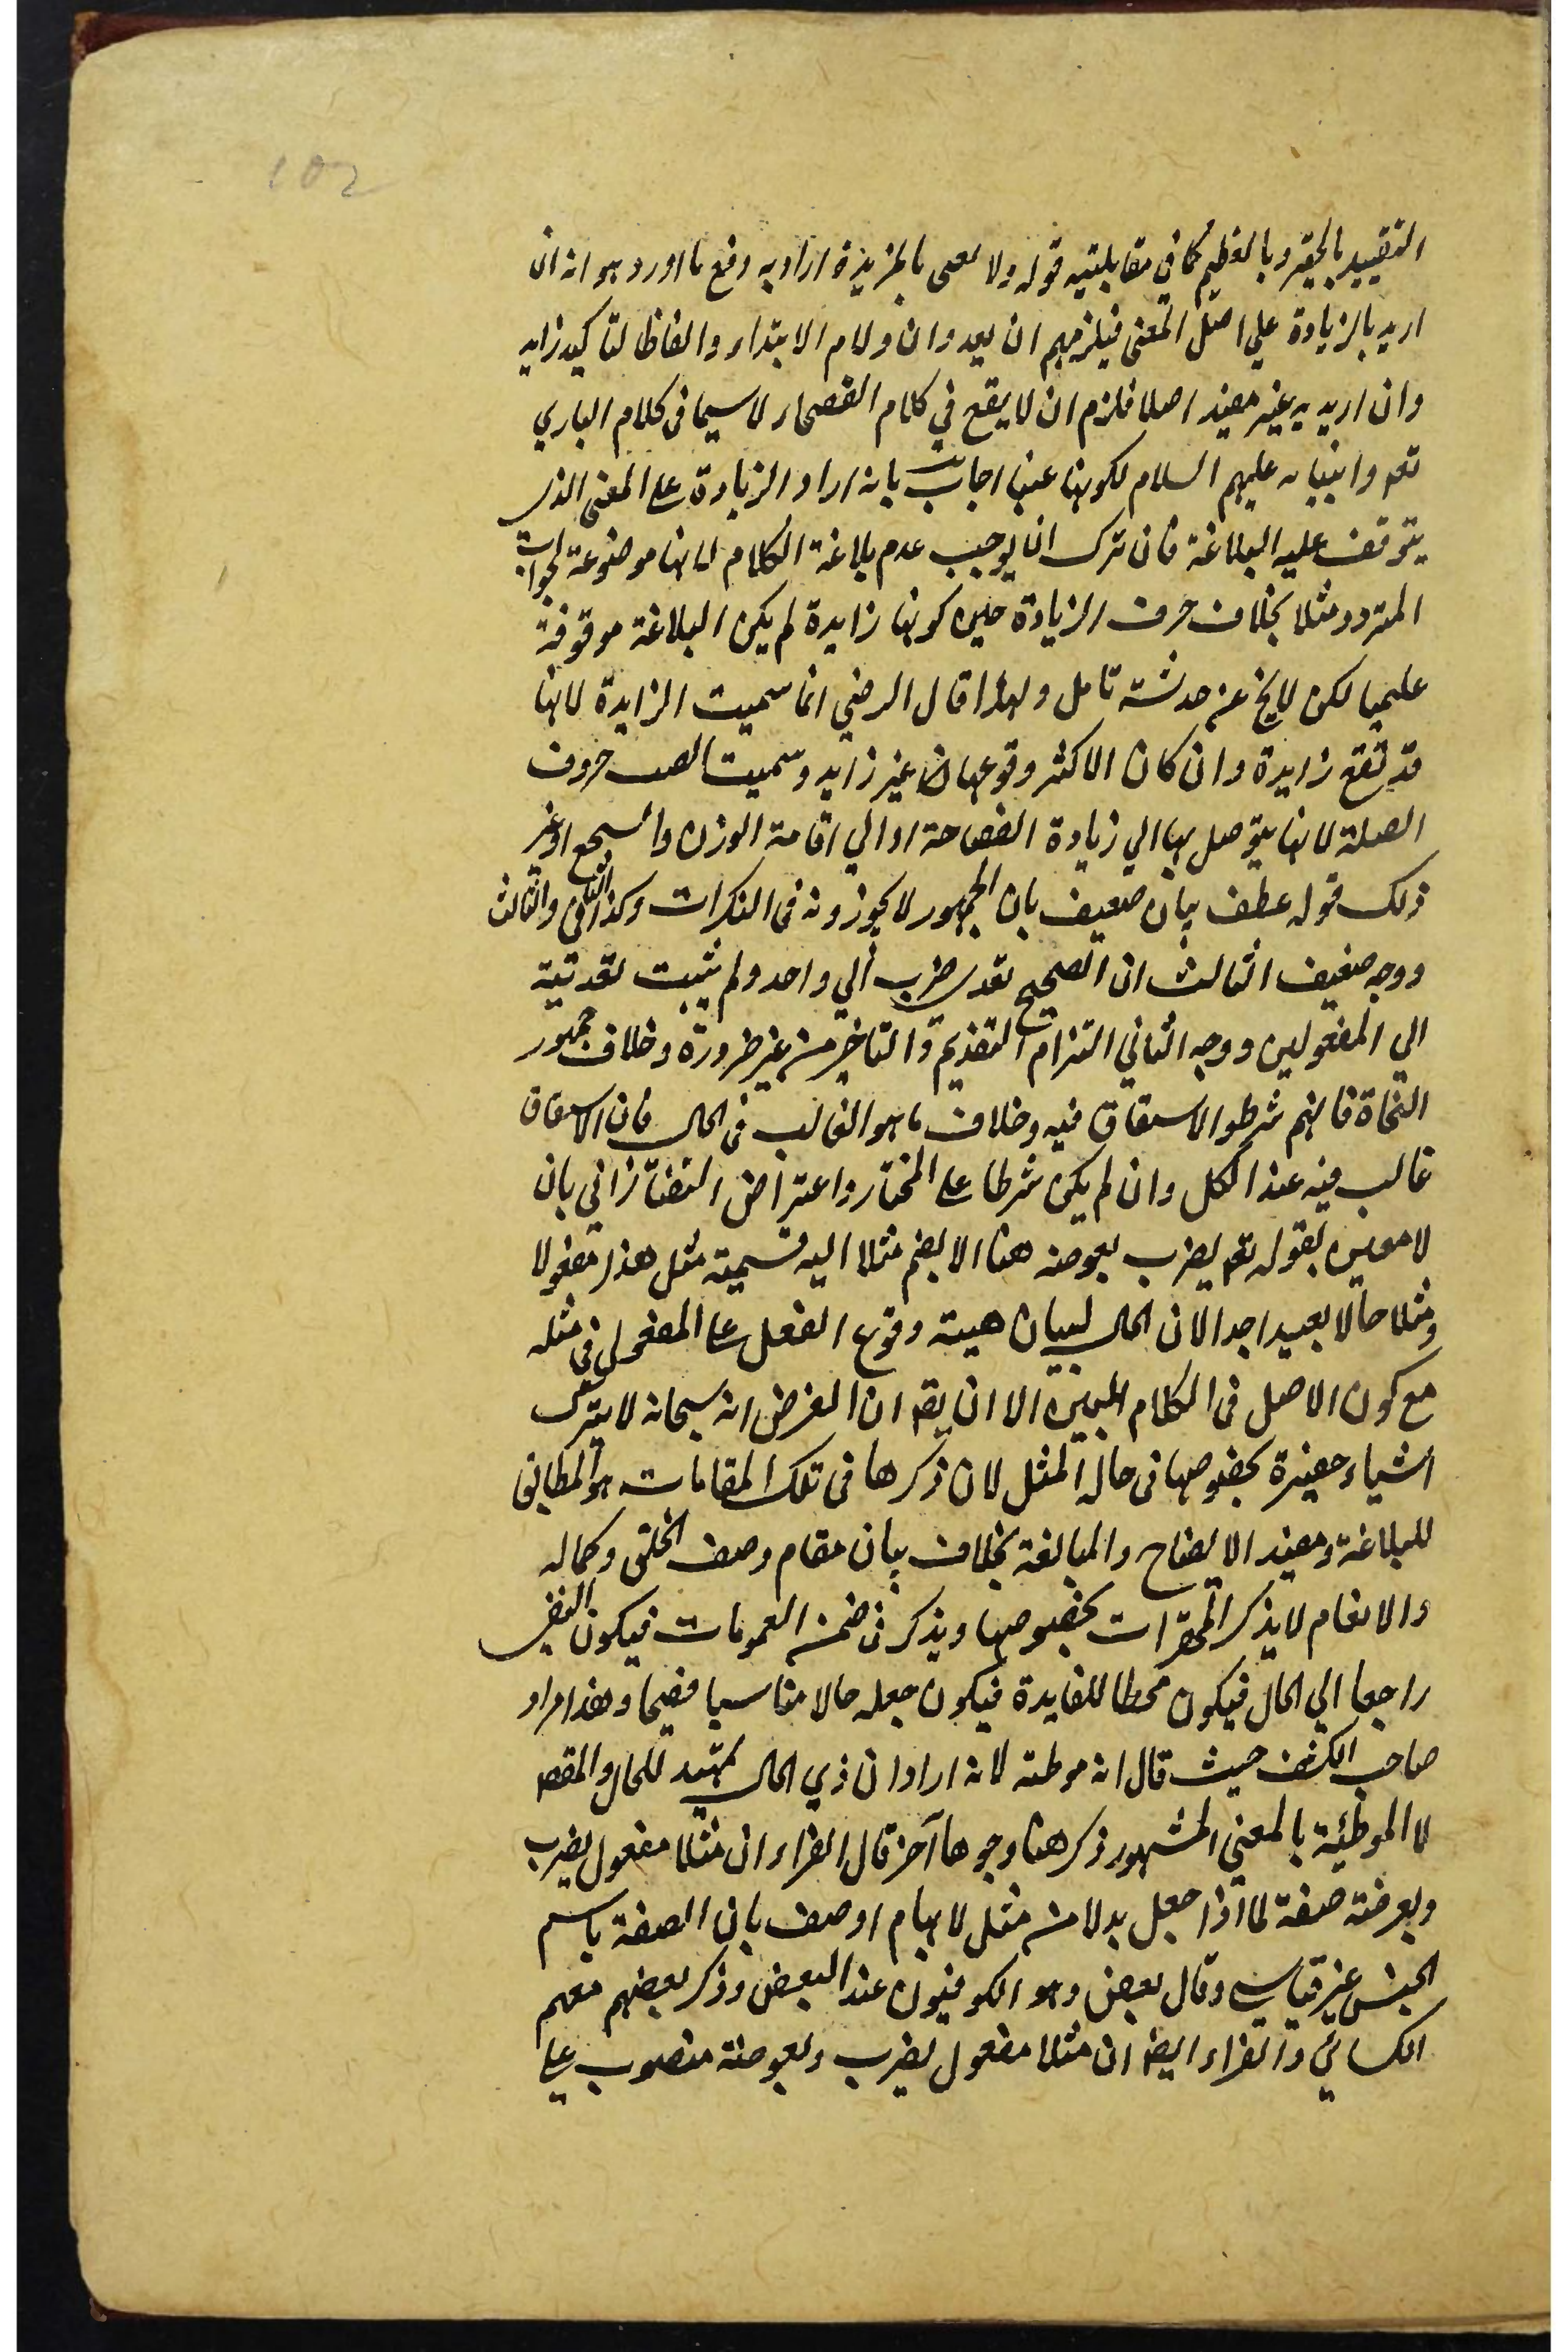 102
التقييد بالحقير وبالعظيم كما في مقابلتيه قوله ولا نعنى بالمزيدة اراد به دفع ما اورد وهو انه ان
اريد بالزيادة علي اصل المعنى فيلزمهم ان يعدوا ان ولام الابتداء والفاظ التاكيد زايد
وان اريد به غير مفيد اصلا فلزم ان لا يقع في كلام الفصحاء لا سيما فى كلام الباري
تعم وانبيائه عليهم السلام لكونها عبثا اجاب بانه اراد الزيادة على المعنى الذى
يتوقف عليه البلاغة فان ترك ان يوجب عدم بلاغة الكلام لانها موضوعة لجواب
المتردد مثلا بخلاف حرف الزيادة حين كونها زايدة لم يكن البلاغة موقوفة
عليها لكن لا يخ عن خدشة تامل ولهذا قال الرضي انما سميت الزايدة لانها
قد تقع زايدة وان كان الاكثر وقوعها غير زايد وسميت ايضا حروف
الصلة لانها يتوصل بها الي زيادة الفصاحة او الي اقامة الوزن والسجع او غير
ذلك قوله عطف بيان ضعيف بان الجمهور لا يجوزونه فى النكرات وكذا الثاني والثالث
ووجه ضعيف الثالث ان الصحيح تعد يضرب الي واحد ولم يثبت تعديته
الي المفعولين ووجه الثاني التزام التقديم والتاخير من غير ضرورة وخلاف جمهور
النحاة فانهم شرطوا الاشتقاق فيه وخلاف ما هو الغالب فى الحال فان الاشتقاق
غالب فيه عند الكل وان لم يكن شرطا على المختار واعتراض التفتازاني بان
لا معنى لقوله تعم يضرب بعوضة هنا الا بضم مثلا اليه فتسميته مثل هذا مفعولا
ومثلا حالا بعيد جدا لان الحال لبيان هيئة وقوع الفعل على المفعول في مثله
مع كون الاصل فى الكلام المبين الا ان يقم ان الغرض انه سبحانه لا يترك
اشياء حقيرة بخصوصها فى حال المثل لان ذكرها فى تلك المقامات هو المطابق
للبلاغة ومفيد الايضاح والمبالغة بخلاف بيان مقام وصف الخلق وكماله
والانعام لا يذكر المحقرات بخصوصها ويذكر فى ضمن العمومات فيكون النفى
راجعا الي الحال فيكون محطا للفايدة فيكون جعله حالا مناسبا فصيحا وهذا مراد
صاحب الكشف حيث قال انه موطئة لانه اراد ان ذي الحال تمهيد للحال والمقصم
لا الموطئة بالمعني المشهور ذكر هنا وجوها آخر قال الفراء ان مثلا مفعول يضرب
وبعوضة صفة لما اذا جعل بدلا من مثل لابهام اوصف بان الصفة باسم
الجنس غير قياسي وقال بعض وهو الكوفيون عند البعض وذكر بعضهم معهم
الكسائي والفراء ايضا ان مثلا مفعول يضرب وبعوضة منصوب على